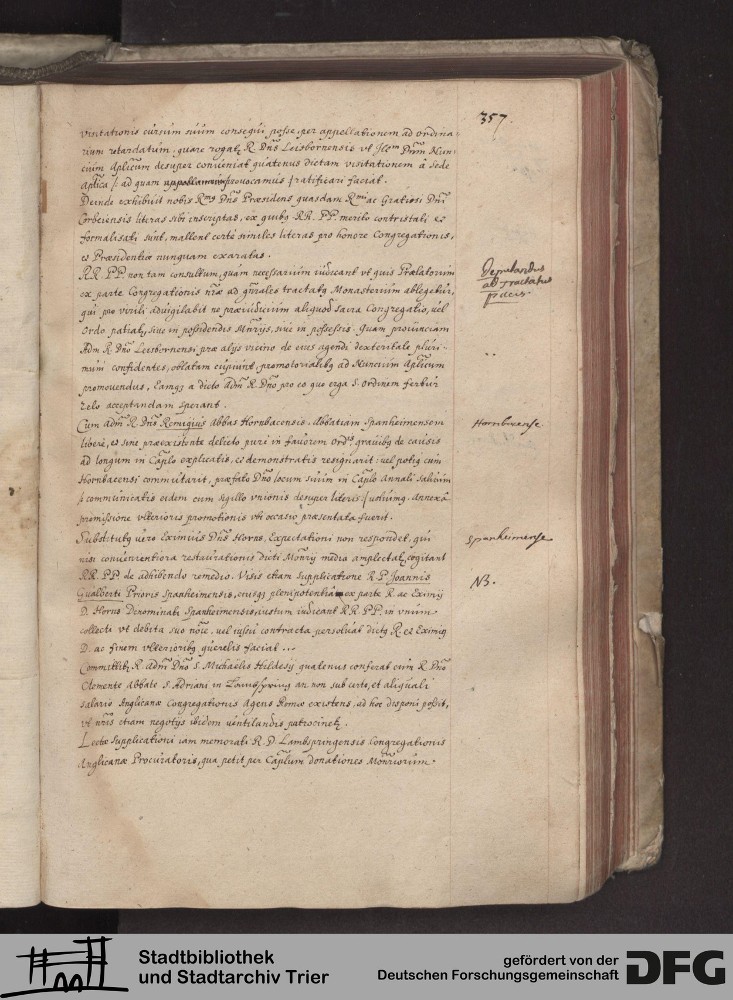 357.
visitationis cursum suum consequi posse, per appellationem ad ordina-
rium retardatum, quare rogatq R. Dn̄s Leisbornensis vt Illm̄ Dn̄m Nun-
cium Aplicum desuper conveniat quatenus dictam visitationem à Sede
Aplica /: ad quam provocamus / ratificari faciat.
Deinde exhibuit nobis Rm̄s Dn̄s Præsidens quasdam Rm̄i ac Gratiosi Dn̄i
Corbeiensis literas sibi inscriptas, ex quibq RR. PP. merito contristati et
formalisati sunt, mallent certè similes literas pro honore Congregationis,
et Præsidentiæ nunquam exaratas.
RR. PP. non tam consultum, quàm necessarium iudicant vt quis Prælatorum
ex parte Congregationis nr̄æ ad gn̄rales tractatq Monasterium ablegetur,
qui pro virili advigilabit ne præiudicium aliquod sacra Congregatio, vel
Ordo patiatq, sive in possidendis Mn̄rijs, sive in possessis. Quam provinciam
Adm R. Dn̄o Leisbornensi præ alijs vicino de eius agendi dexteritate pluri-
mum confidentes, oblatam cupiunt, promotorialibq ad Nuncium Aplicum
promovendus, Eamqz a dicto Adm̄ R. Dn̄o pro eo quo erga S. ordinem fertur
zelo acceptandam sperant.
Deputandus
ad Tractatus
pacis.
Cum adm̄ R. Dn̄s Remigius Abbas Hornbacensis, Abbatiam Spanheimensem
liberè, et sine præexistente delicto purè in favorem Ord's gravibq de causis
ad longum in Cap̄lo explicatis, et demonstratis resignarit: vel potiq cum
Hornbacensi commutarit, præfato Dn̄o locum suum in Cap̄lo Annali salvum
/: communicatis eidem cum sigillo vnionis desuper literis :/ annexâ
promissione vlterioris promotionis vbi occasio præsentata fuerit.
Hornbacense
Substitutq vero Eximius Dn̄s Horno, Expectationi non respondet, qui
nisi convenientiora restaurationis dicti Mon̄rij media amplectatq, cogitant
RR. PP. de adhibendo remedio. Visis etiam supplicatione R. P. Joannis
Gualberti Prioris Spanheimensis, eiusqz plenipotentiâ ex parte R. ac Eximij
D. Horno Denominati Spanheimensis, iustum iudicant RR. PP. in vnum
collecti vt debita suo nōie, vel iussu contracta persolvat dictq R. et Eximiq
D. ac finem vlterioribq querelis faciat ...
Spanheimense
NB.
Committitq R. adm̄ Dn̄o S. Michaëlis Hildesij quatenus conferat cum R. Dn̄o
Clemente abbate S. Adriani in Lambspring an non sub certo, et aliquali
salario Anglicanæ Congregationis Agens Romæ existens, ad hoc disponi possit,
vt nr̄is etiam negotijs ibidem ventilandis patrocinetq.
Lectæ supplicationi iam memorati R. D. Lambspringensis Congregationis
Anglicanæ Procuratoris, qua petit per Cap̄lum donationes Mon̄riorum
Stadtbibliothek
und Stadtarchiv Trier
gefördert von der
Deutschen Forschungsgemeinschaft
DFG